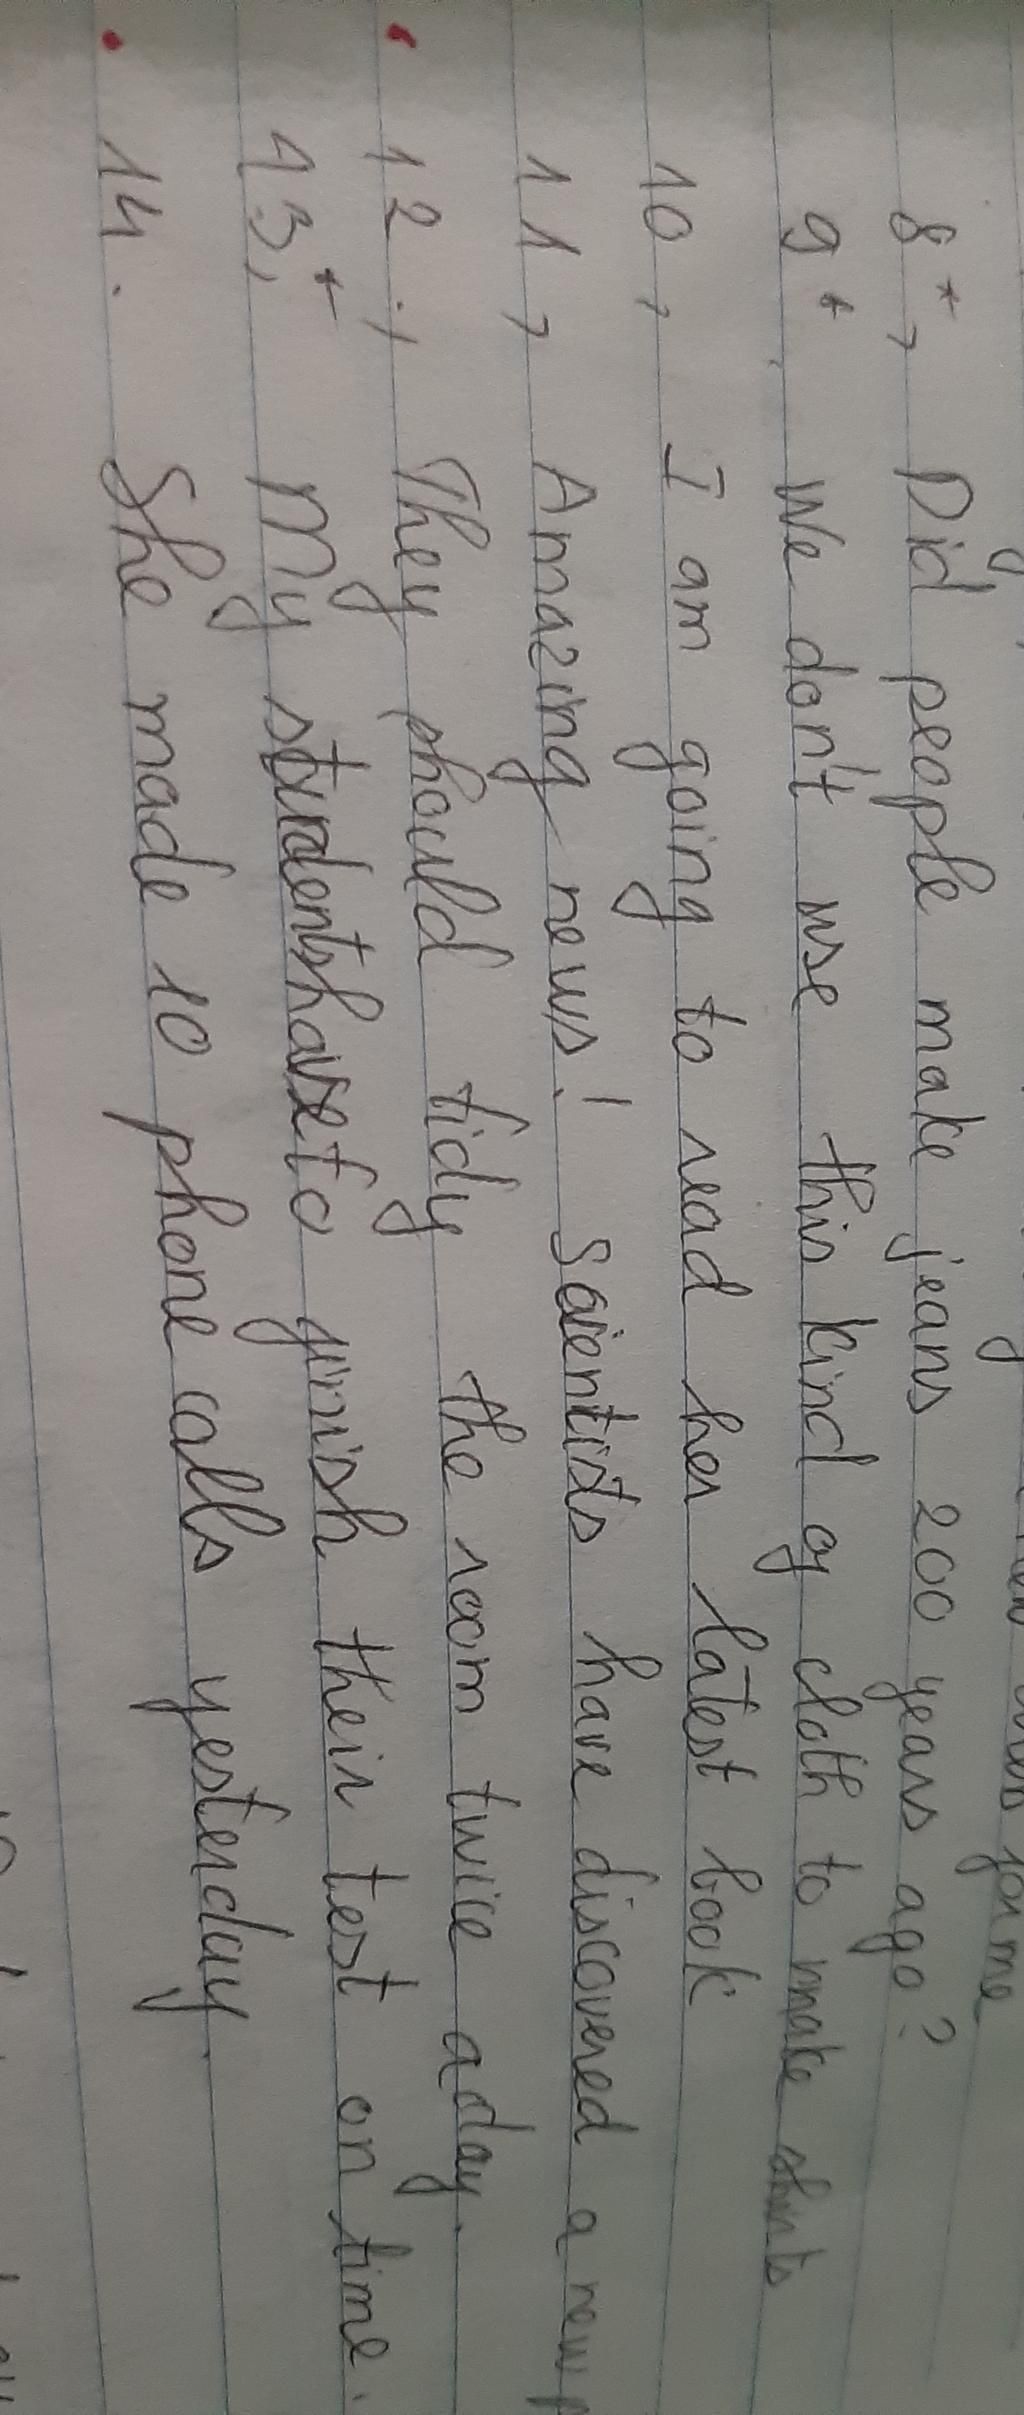 for me
8*, Did people make jeans 200 years ago?
9*. We don't use this kind of cloth to make shirts
10, I am going to read her latest book
11, Amazing news! Scientists have discovered a new
12., They should tidy the room twice a day.
13,* My students have to finish their test on time.
14. She made 10 phone calls yesterday.